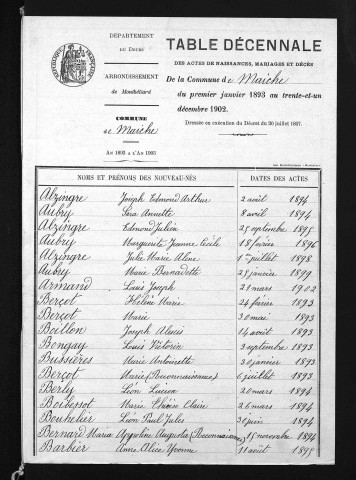 DÉPARTEMENT
DU DOUBS
ARRONDISSEMENT
de Montbéliard
COMMUNE
de Maîche
AN 1893 A L'AN 1903
TABLE DÉCENNALE
DES ACTES DE NAISSANCES, MARIAGES ET DÉCÈS
De la Commune de Maîche
du premier janvier 1893 au trente-et-un
décembre 1902.
Dressée en exécution du Décret du 20 juillet 1807.
NOMS ET PRÉNOMS DES NOUVEAU-NÉS DATES DES ACTES
Alzingre Joseph Edmond Arthur 2 août 1894
Aubry Sara Annette 8 avril 1894
Alzingre Edmond Julien 25 septembre 1895
Aubry Marguerite Jeanne Cécile 18 février 1896
Alzingre Julie Marie Aline 1er juillet 1898
Aubry Marie Bernadette 25 janvier 1899
Armand Louis Joseph 21 mars 1902
Berçot Hélène Marie 24 février 1893
Berçot Marie 30 mai 1893
Boillon Joseph Alexis 14 août 1893
Bongay Louis Victorin 3 septembre 1893
Bussières Marie Antoinette 30 janvier 1893
Berçot Marie (Reconnaissance) 6 juillet 1893
Berly Léon Lucien 20 mars 1894
Marie Thérèse Claire 26 mars 1894
Bouhélier Léon Paul Jules juin 1894
Bernard Maria Appoline Augusta (Reconnaissance) 15 novembre 1894
Barbier Anne Alice Yvonne 11 août 1895